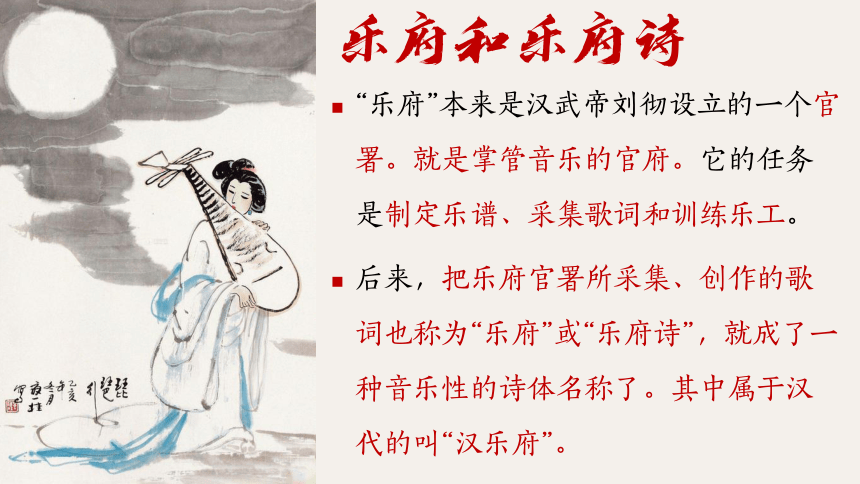 乐府和乐府诗
“乐府”本来是汉武帝刘彻设立的一个官
署。就是掌管音乐的官府。它的任务
是制定乐谱、采集歌词和训练乐工。
后来，把乐府官署所采集、创作的歌
词也称为“乐府”或“乐府诗”，就成了一
种音乐性的诗体名称了。其中属于汉
代的叫“汉乐府”。
琵琶行